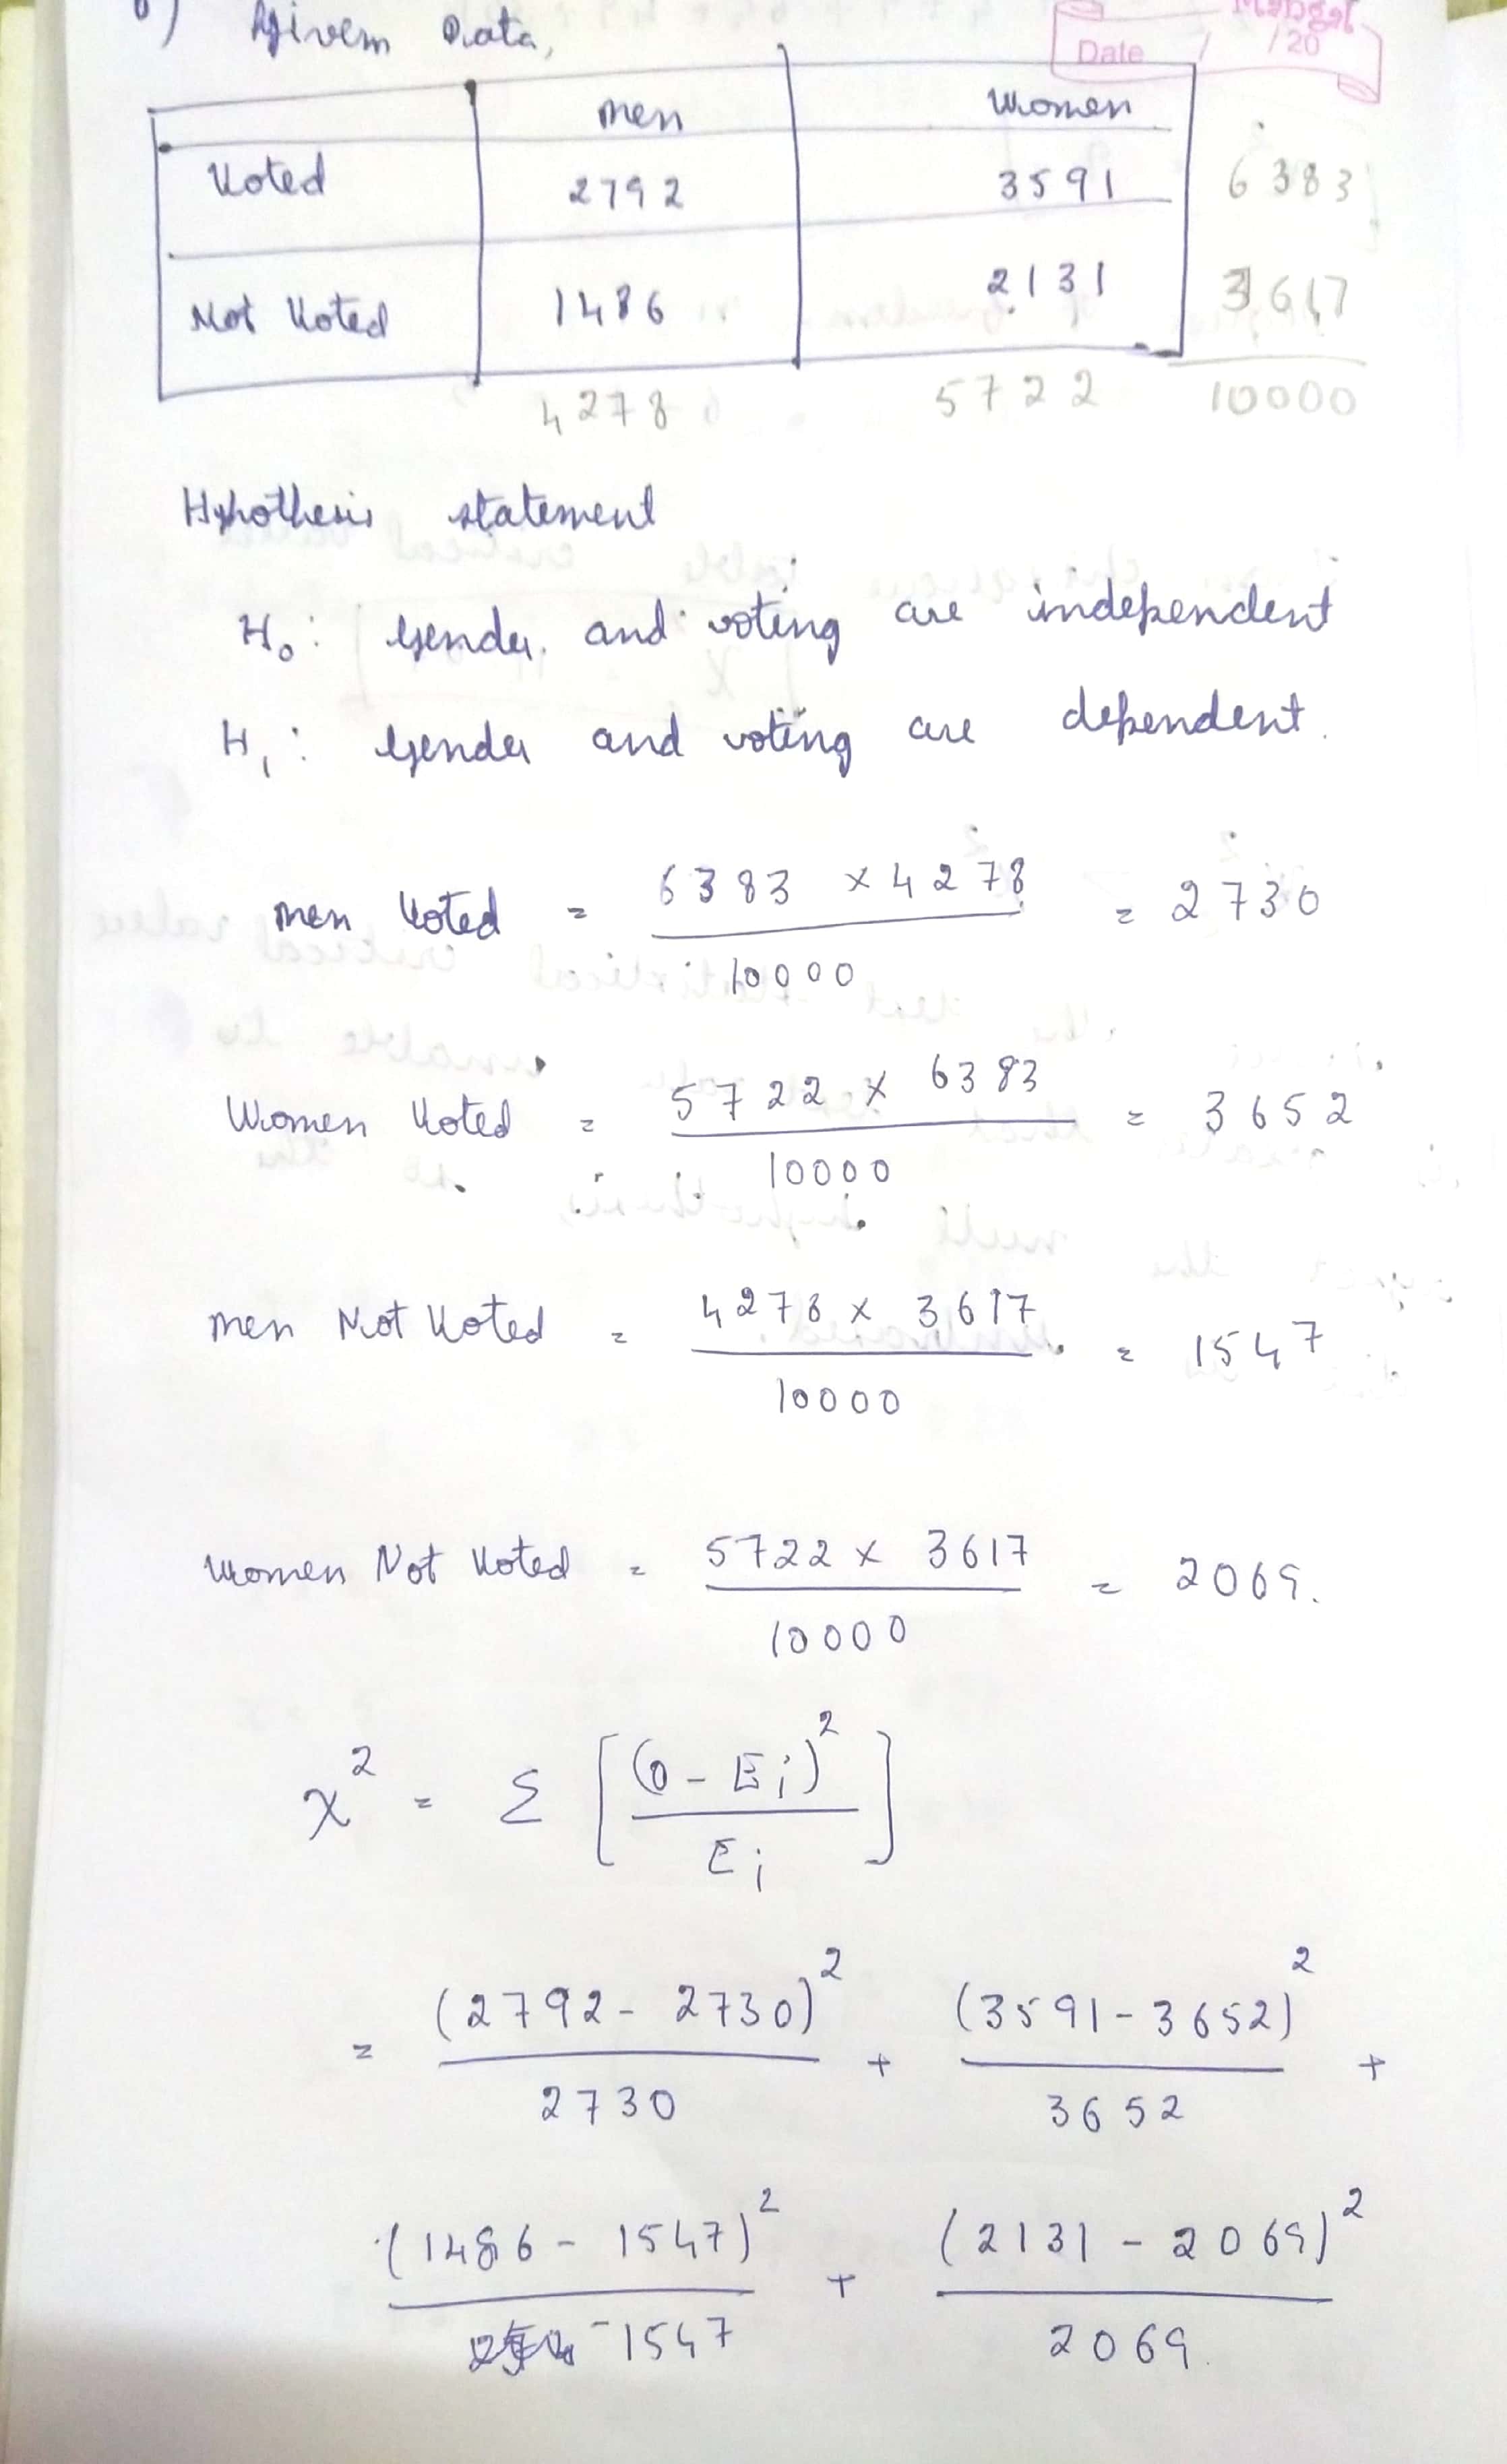 6) Given Data,
Mangal
Date / /20
men women
Voted 2792 3591 6383
Not Voted 1486 2131 3617
4278 5722 10000
Hypothesis statement
H₀: Gender and voting are independent
H₁: Gender and voting are dependent.
men Voted = 6383 × 4278 / 10000 = 2730
Women Voted = 5722 × 6383 / 10000 = 3652
men Not Voted = 4278 × 3617 / 10000 = 1547
Women Not Voted = 5722 × 3617 / 10000 = 2069.
χ² = Σ [(O - Ei)² / Ei]
= (2792 - 2730)² / 2730 + (3591 - 3652)² / 3652 +
(1486 - 1547)² / 1547 + (2131 - 2069)² / 2069.